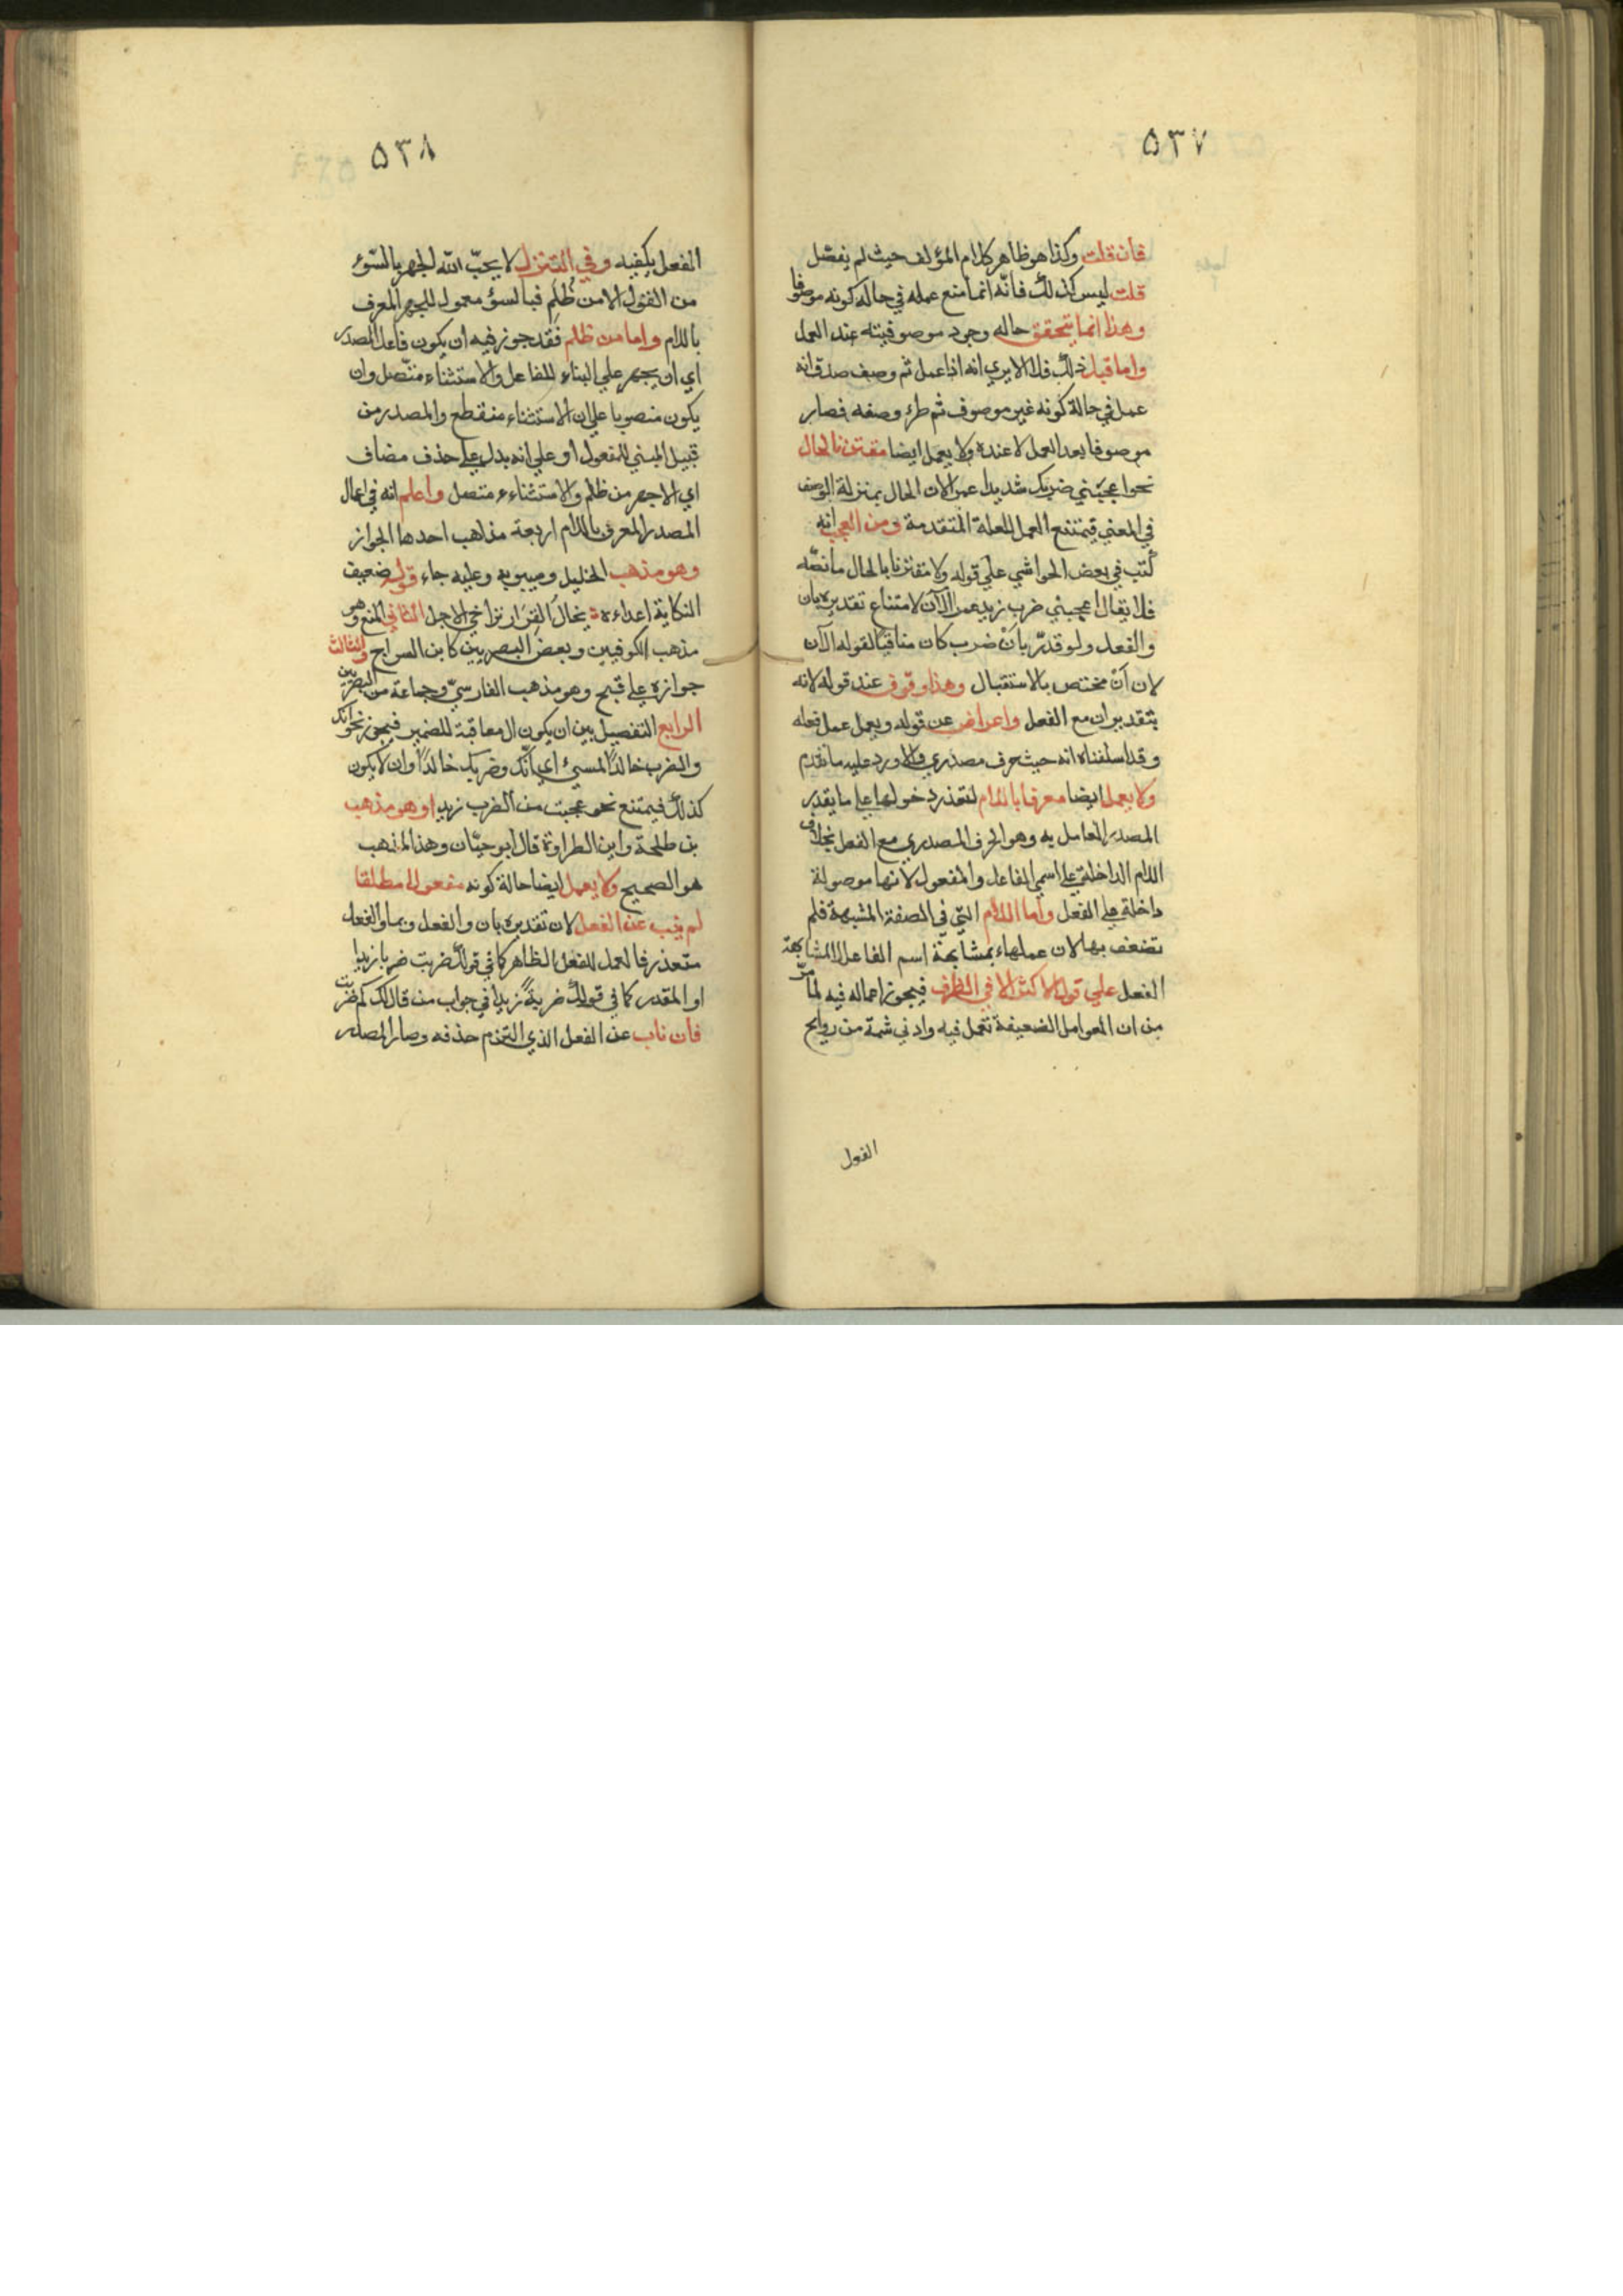 ٥٣٧
فان قلت وكذا هو ظاهر كلام المؤلف حيث لم يفصّل
قلت ليس كذلك فانّه انما منع عمله في حالة كونه موصوفا
وهذا انما يتحقق حاله وجود موصوفيته عند العمل
واما قبل ذلك فلا الا يري انه اذا عمل ثم وصف صدق انه
عمل في حالة كونه غير موصوف ثم طرء وصفه فصار
موصوفا بعد العمل لا عنده ولا يعمل ايضا مقترنا لحال
نحو اعجبني ضربك شديدا عمرا لان الحال بمنزلة الوصف
في المعني فيمتنع العمل للعلة المتقدمة ومن العجب انه
كتب في بعض الحواشي علي قوله ولا مقترنا بالحال ما نصّه
فلا يقال اعجبني ضرب زيد عمرا الآن لامتناع تقديره بان
والفعل ولو قدّر بأنْ ضرب كان منافيا لقوله الآن
لان أنْ مختص بالاستقبال وهذا وقوف عند قوله لانه
بتقدير ان مع الفعل واعراض عن قوله ويعمل عمل فعله
وقد اسلفناه انه حيث حرف مصدري والا ورد عليه ما تقدم
ولا يعمل ايضا معرفا باللام لتعذر دخولها علي ما يقدر
المصدر العامل به وهو الحرف المصدري مع الفعل بخلاف
اللام الداخلة علي اسمي الفاعل والمفعول لانها موصولة
داخلة علي الفعل واما اللام التي في الصفة المشبهة فلم
تضعف بها لان عملهاء بمشابهة اسم الفاعل لا لمشابهة
الفعل علي قول الاكثر الا في الظرف فيجوز اعماله فيه لما مرّ
من ان العوامل الضعيفة تعمل فيه وادني شمة من روايح
الفعل
٥٣٨
الفعل يكفيه وفي التنزيل لا يحبّ الله الجهر بالسّوء
من القول الا من ظُلم فبالسوء معمول للجهر المعرف
باللام واما من ظلم فقد جوز فيه ان يكون فاعل المصدر
اي ان يجهر علي البناء للفاعل والاستثناء متّصل وان
يكون منصوبا علي ان الاستثناء منقطع والمصدر من
قبيل المبني للمفعول او علي انه بدل علي حذف مضاف
اي الا جهر من ظلم والاستثناء متصل واعلم انه في اعمال
المصدر المعرف باللام اربعة مذاهب احدها الجواز
وهو مذهب الخليل وسيبويه وعليه جاء قوله ضعيف
النكاية اعداءه يخال الفرار يراخي الاجل الثاني المنع وهو
مذهب الكوفيين وبعض البصريين كابن السراج والثالث
جوازه علي قبح وهو مذهب الفارسيّ وجماعة من البصريين
الرابع التفصيل بين ان يكون ال معاقبة للضمير فيجوز نحو انك
والضرب خالدًا لمسيئ اي انّك وضربك خالدًا وان لا يكون
كذلك فيمتنع نحو عجبت من الضرب زيدا وهو مذهب
بن طلحة وابن الطراوة قال ابو حيّان وهذا المذهب
هو الصحيح ولا يعمل ايضا حالة كونه مفعولا مطلقا
لم ينب عن الفعل لان تقديره بان والفعل وبما والفعل
متعذر فالعمل للفعل الظاهر كما في قولك ضربت ضربا زيدا
او المقدر كما في قولك ضربةً زيدا في جواب من قال لك كم ضربت
فان ناب عن الفعل الذي التزم حذفه وصار المصدر